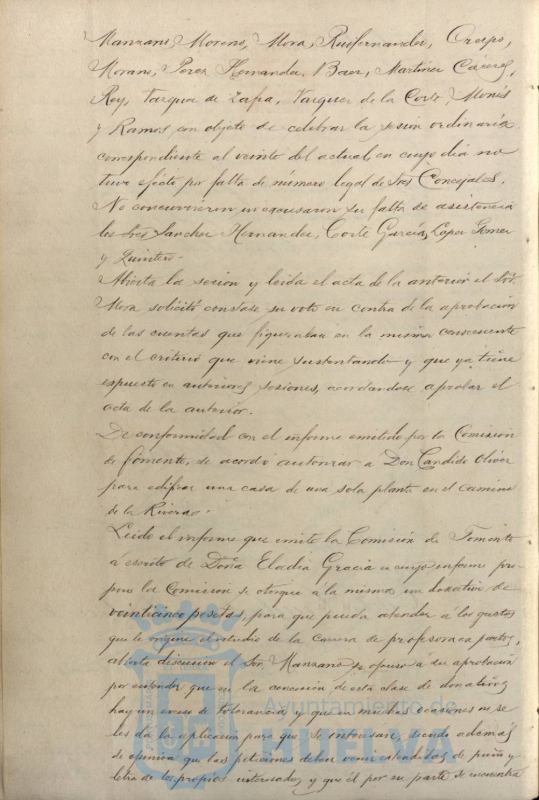 Manzano, Moreno, Mora, Ruifernandez, Crespo,
Morano, Perez Hernandez, Baez, Martinez Caceres,
Rey, Vazquez de Zafra, Vazquez de la Corte, Monís
y Ramos con objeto de celebrar la sesion ordinaria
correspondiente al veinte del actual, en cuyo dia no
tuvo efecto por falta de número legal de Sres Concejales.
No concurrieron ni escusaron su falta de asistencia
los Sres Sanchez Hernandez, Corte Garcia, Lopez Gomez
y Quintero.
Abierta la sesion y leida el acta de la anterior el Sor.
Mora solicitó constase su voto en contra de la aprobacion
de las cuentas que figuraban en la misma consecuente
con el criterio que viene sustentando y que ya tiene
espuesto en anteriores sesiones, acordandose aprobar el
acta de la anterior.
De conformidad con el informe emitido por la Comision
de Fomento, se acordó autorizar a Don Candido Oliver
para edificar una casa de una sola planta en el camino
de la Rivera.
Leido el informe que emite la Comision de Fomento
á escrito de Doña Eladia Gracia en cuyo informe pro
pone la Comision se otorgue á la misma un donativo de
veinticinco pesetas, para que pueda atender á los gastos
que le origine el estudio de la Carrera de profesora en partos,
abierta discusion el Sor. Manzano se opuso a su aprobacion
por entender que en la concesion de esta clase de donativos
hay un exceso de tolerancia y que en muchas ocasiones no se
les da la aplicacion para que se interesan, siendo ademas
de opinion que las peticiones deben venir estendidas de puño y
letra de los propios interesados, y que él por su parte se encuentra
Ayuntamiento de
HUELVA